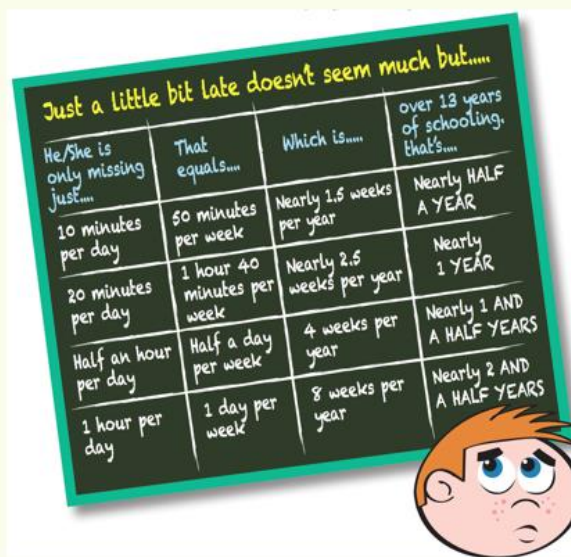 Just a little bit late doesn't seem much but.....
He/She is
only missing
just....
That
equals....
Which is.....
over 13 years
of schooling,
that's....
10 minutes
per day
50 minutes
per week
Nearly 1.5 weeks
per year
Nearly HALF
A YEAR
20 minutes
per day
1 hour 40
minutes per
week
Nearly 2.5
weeks per year
Nearly
1 YEAR
Half an hour
per day
Half a day
per week
4 weeks per
year
Nearly 1 AND
A HALF YEARS
1 hour per
day
1 day per
week
8 weeks per
year
Nearly 2 AND
A HALF YEARS